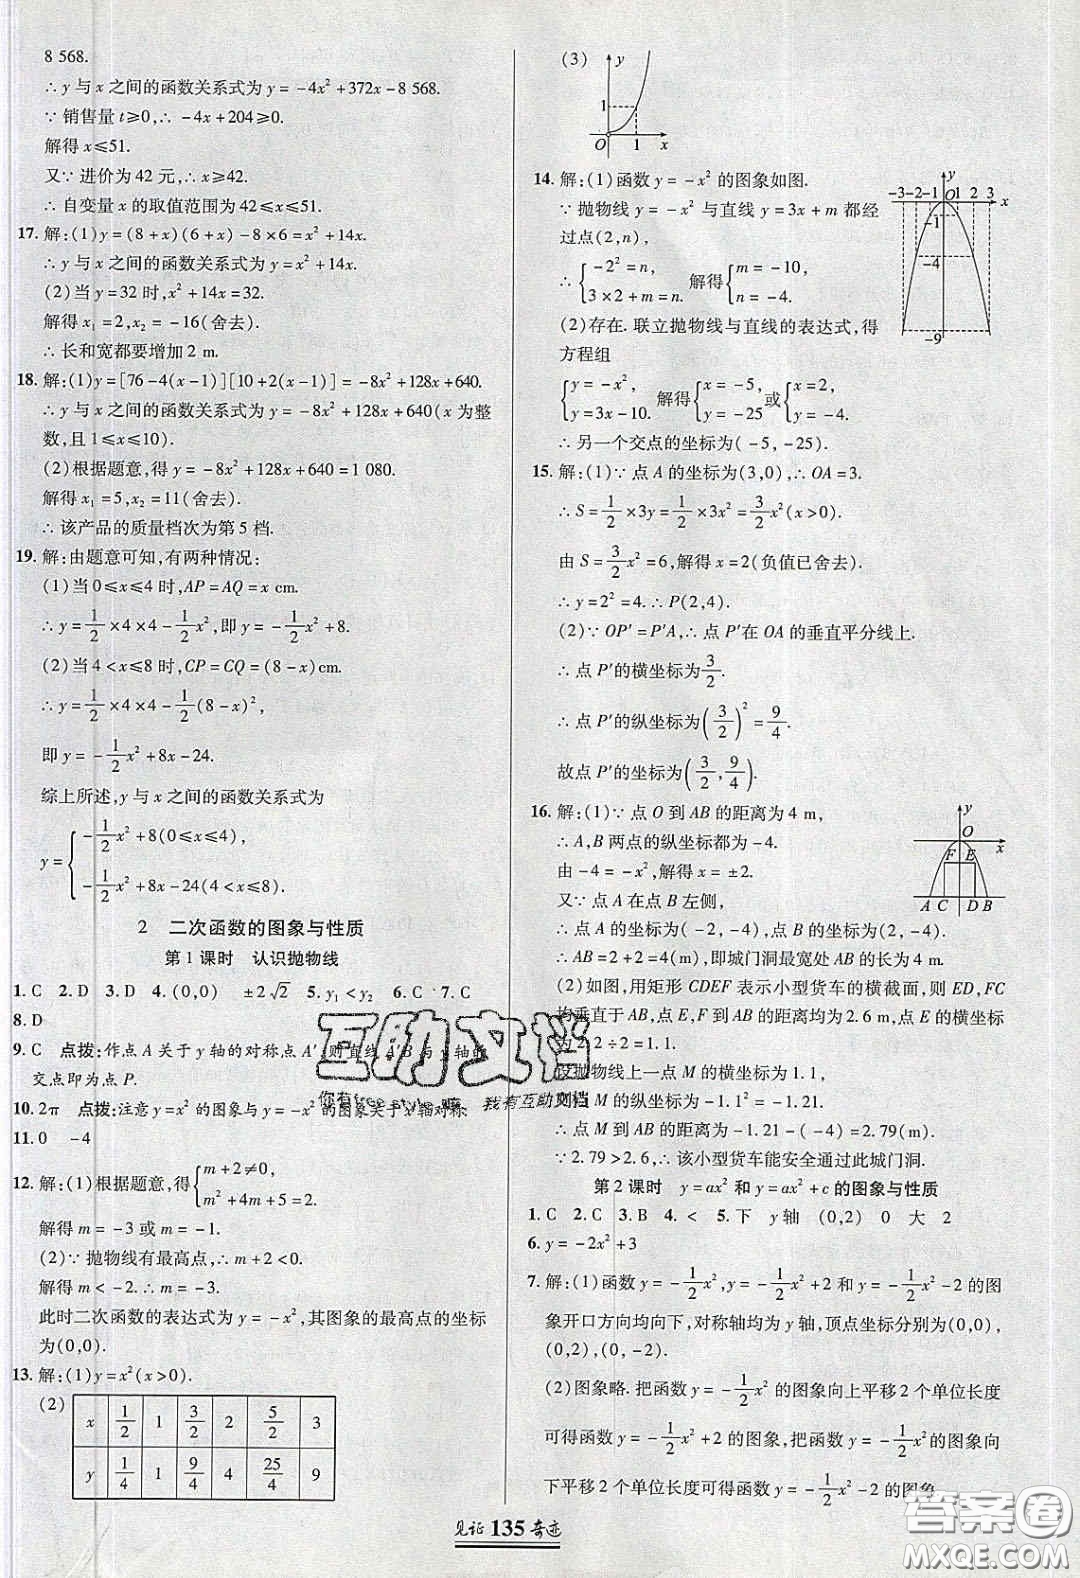 8 568.
∴ y 与 x 之间的函数关系式为 y = -4x²+372x-8 568.
∵ 销售量 t≥0,∴ -4x+204≥0.
解得 x≤51.
又∵ 进价为 42 元,∴ x≥42.
∴ 自变量 x 的取值范围为 42≤x≤51.
17. 解:(1)y=(8+x)(6+x)-8×6=x²+14x.
∴ y 与 x 之间的函数关系式为 y=x²+14x.
(2)当 y=32 时,x²+14x=32.
解得 x₁=2,x₂=-16(舍去).
∴ 长和宽都要增加 2 m.
18. 解:(1)y=[76-4(x-1)][10+2(x-1)]=-8x²+128x+640.
∴ y 与 x 之间的函数关系式为 y=-8x²+128x+640(x 为整
数,且 1≤x≤10).
(2)根据题意,得 y=-8x²+128x+640=1 080.
解得 x₁=5,x₂=11(舍去).
∴ 该产品的质量档次为第 5 档.
19. 解:由题意可知,有两种情况:
(1)当 0≤x≤4 时,AP=AQ=x cm.
∴ y=1/2×4×4-1/2x²,即 y=-1/2x²+8.
(2)当 4<x≤8 时,CP=CQ=(8-x)cm.
∴ y=1/2×4×4-1/2(8-x)²,
即 y=-1/2x²+8x-24.
综上所述,y 与 x 之间的函数关系式为
y={-1/2x²+8(0≤x≤4),
-1/2x²+8x-24(4<x≤8).
2 二次函数的图象与性质
第 1 课时 认识抛物线
1. C 2. D 3. D 4. (0,0) ±2√2 5. y₁<y₂ 6. C 7. C
8. D
9. C 点拨:作点 A 关于 y 轴的对称点 A′,则直线 A′B 与 y 轴的
交点即为点 P.
10. 2π 点拨:注意 y=x² 的图象与 y=-x² 的图象关于 x 轴对称.
11. 0 -4
12. 解:(1)根据题意,得{m+2≠0,
m²+4m+5=2.
解得 m=-3 或 m=-1.
(2)∵ 抛物线有最高点,∴ m+2<0.
解得 m<-2. ∴ m=-3.
此时二次函数的表达式为 y=-x²,其图象的最高点的坐标
为(0,0).
13. 解:(1)y=x²(x>0).
(2)
x 1/2 1 3/2 2 5/2 3
y 1/4 1 9/4 4 25/4 9
(3)
y
1
O 1 x
14. 解:(1)函数 y=-x² 的图象如图.
∵ 抛物线 y=-x² 与直线 y=3x+m 都经
过点(2,n),
∴ {-2²=n,
3×2+m=n. 解得{m=-10,
n=-4.
(2)存在. 联立抛物线与直线的表达式,得
方程组
{y=-x²,
y=3x-10. 解得{x=-5,
y=-25 或{x=2,
y=-4.
∴ 另一个交点的坐标为(-5,-25).
y
-3 -2 -1 O 1 2 3 x
-1
-4
-9
15. 解:(1)∵ 点 A 的坐标为(3,0),∴ OA=3.
∴ S=1/2×3y=1/2×3x²=3/2x²(x>0).
由 S=3/2x²=6,解得 x=2(负值已舍去).
∴ y=2²=4. ∴ P(2,4).
(2)∵ OP′=P′A,∴ 点 P′在 OA 的垂直平分线上.
∴ 点 P′的横坐标为3/2.
∴ 点 P′的纵坐标为(3/2)²=9/4.
故点 P′的坐标为(3/2,9/4).
16. 解:(1)∵ 点 O 到 AB 的距离为 4 m,
∴ A,B 两点的纵坐标都为-4.
由-4=-x²,解得 x=±2.
又∵ 点 A 在点 B 左侧,
∴ 点 A 的坐标为(-2,-4),点 B 的坐标为(2,-4).
∴ AB=2+2=4(m),即城门洞最宽处 AB 的距离为 4 m.
(2)如图,用矩形 CDEF 表示小型货车的横截面,则 ED,FC
均垂直于 AB,点 E,F 到 AB 的距离均为 2.6 m,点 E 的横坐标
为 2.2÷2=1.1.
设抛物线上一点 M 的横坐标为 1.1,
则点 M 的纵坐标为 y=-1.1²=-1.21.
∴ 点 M 到 AB 的距离为-1.21-(-4)=2.79(m).
∵ 2.79>2.6,∴ 该小型货车能安全通过此城门洞.
y
O
x
F E
A C D B
第 2 课时 y=ax² 和 y=ax²+c 的图象与性质
1. C 2. C 3. B 4. < 5. 下 y 轴 (0,2) 0 大 2
6. y=-2x²+3
7. 解:(1)函数 y=-1/2x²,y=-1/2x²+2 和 y=-1/2x²-2 的图
象开口方向均向下,对称轴均为 y 轴,顶点坐标分别为(0,0),
(0,2),(0,-2).
(2)图象略. 把函数 y=-1/2x² 的图象向上平移 2 个单位长度
可得函数 y=-1/2x²+2 的图象,把函数 y=-1/2x² 的图象向
下平移 2 个单位长度可得函数 y=-1/2x²-2 的图象.
见证 135 奇迹
互助文档
你有free style嘛 我有互助文档
答案圈
MXQE.COM